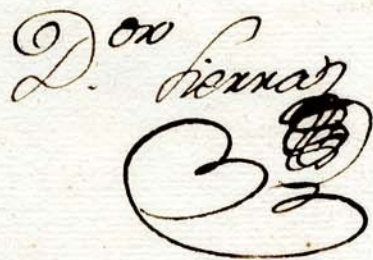 D.ᵒⁿ Sierra